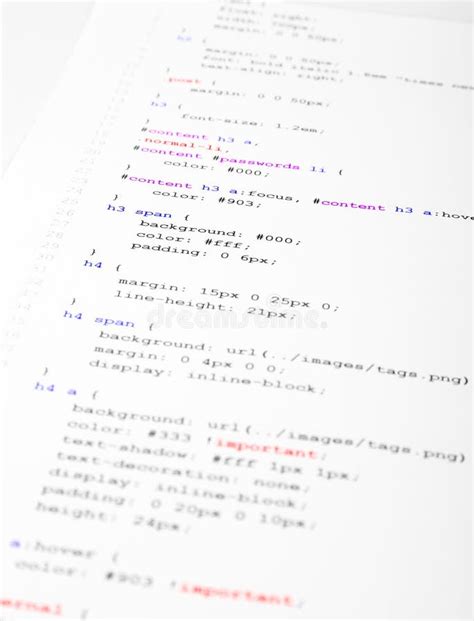 float: right;
width: 700px;
margin: 0 0 50px;
}
h2 {
margin: 0 0 50px;
font: bold italic 1.6em "times
text-align: right;
}
post {
margin: 0 0 50px;
}
h3 {
font-size: 1.2em;
}
#content h3 a,
.normal-li,
#content #passwords li {
color: #000;
}
#content h3 a:focus, #content h3 a:hove
color: #903;
}
h3 span {
background: #000;
color: #fff;
padding: 0 6px;
}
h4 {
margin: 15px 0 25px 0;
line-height: 21px;
}
dreamstime
h4 span {
background: url(../images/tags.png)
margin: 0 4px 0 0;
display: inline-block;
}
h4 a {
background: url(../images/tags.png)
color: #333 !important;
text-shadow: #fff 1px 1px;
text-decoration: none;
display: inline-block;
padding: 0 20px 0 10px;
height: 24px;
}
a:hover {
color: #903 !important;
ernal {